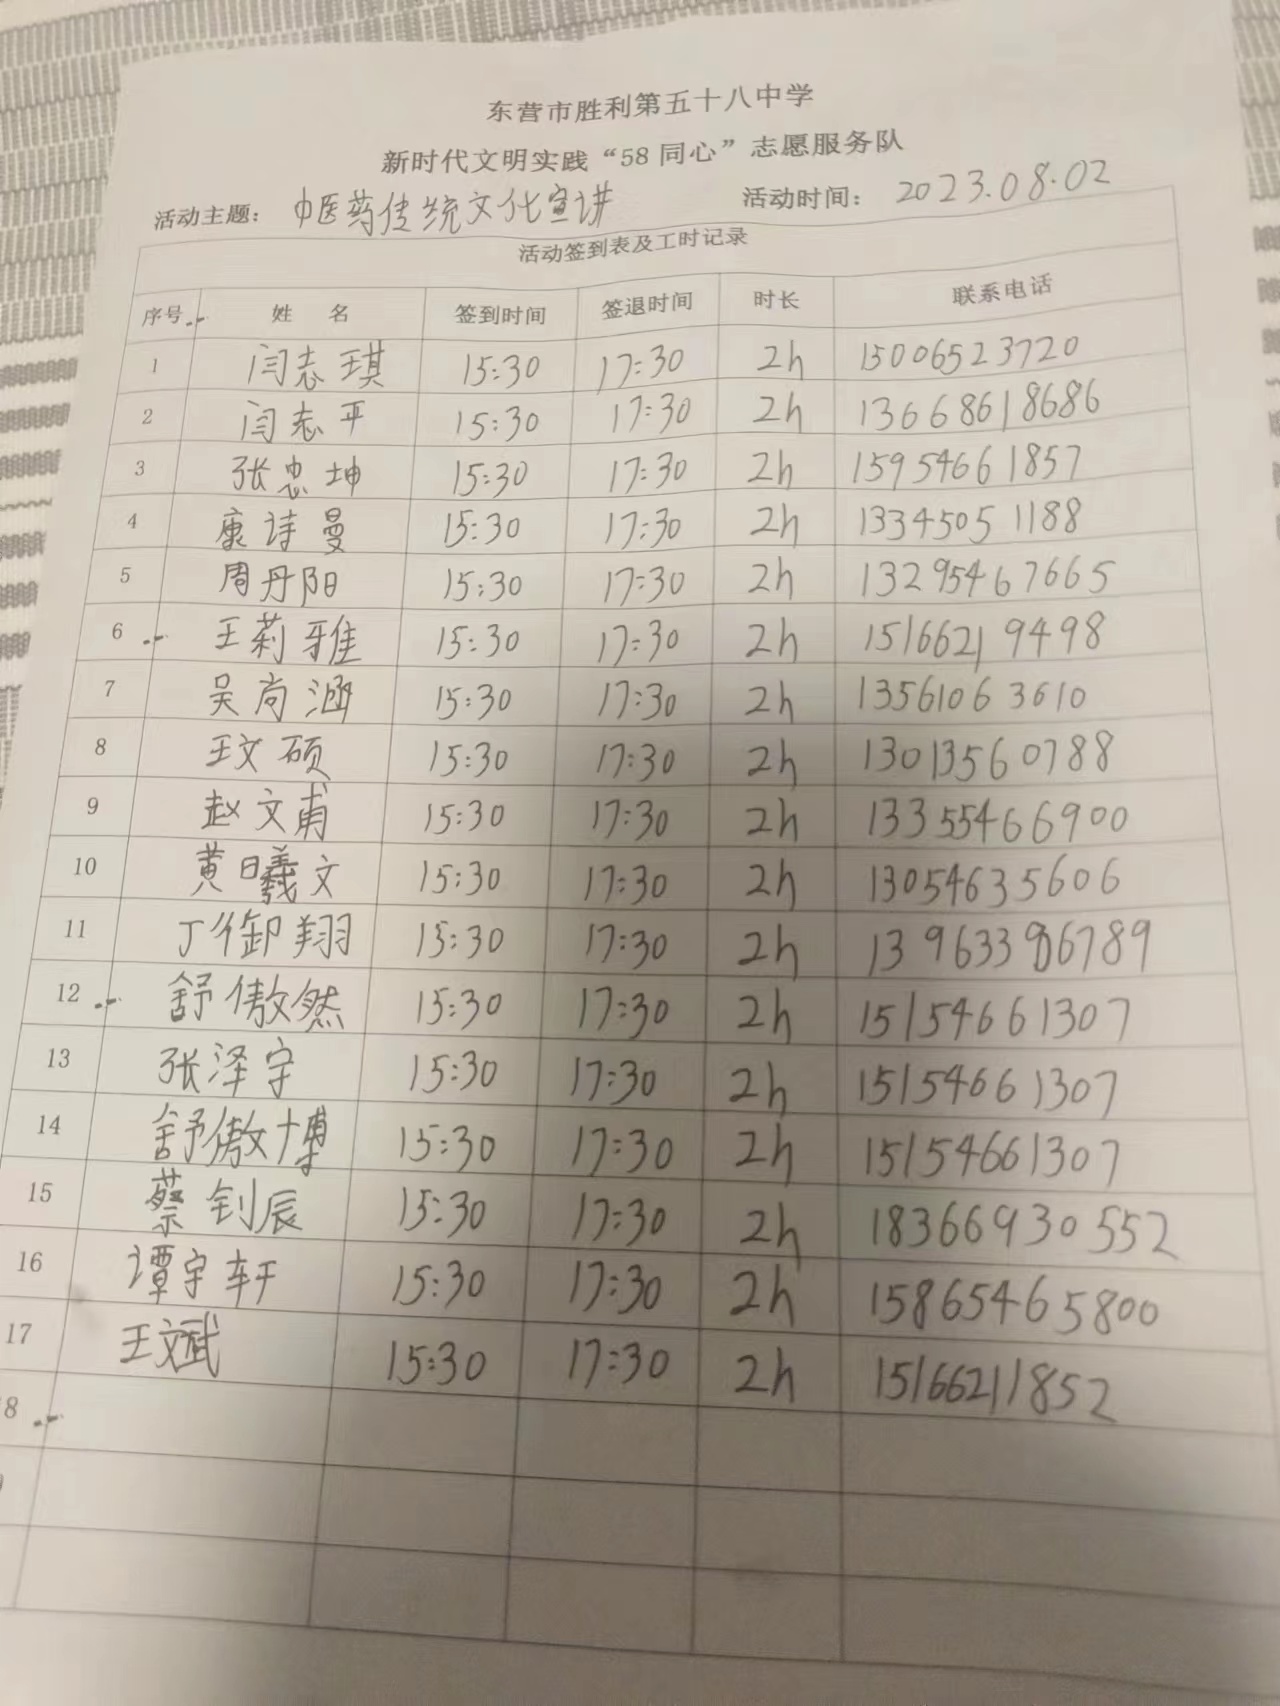 东营市胜利第五十八中学
新时代文明实践“58同心”志愿服务队
活动主题: 中医药传统文化宣讲 活动时间: 2023.08.02
活动签到表及工时记录
序号 姓 名 签到时间 签退时间 时长 联系电话
1 闫志琪 15:30 17:30 2h 15006523720
2 闫志平 15:30 17:30 2h 13668618686
3 张忠坤 15:30 17:30 2h 15954661857
4 康诗曼 15:30 17:30 2h 13345051188
5 周丹阳 15:30 17:30 2h 13295467665
6 王莉雅 15:30 17:30 2h 15166219498
7 吴尚涵 15:30 17:30 2h 13561063610
8 王文硕 15:30 17:30 2h 13013560788
9 赵文甫 15:30 17:30 2h 13355466900
10 黄曦文 15:30 17:30 2h 13054635606
11 丁御翔 15:30 17:30 2h
12 舒傲然 15:30 17:30 2h 15154661307
13 张泽宇 15:30 17:30 2h 15154661307
14 舒傲博 15:30 17:30 2h 15154661307
15 蔡钊辰 15:30 17:30 2h 18366930552
16 谭宇轩 15:30 17:30 2h 15865465800
17 王文斌 15:30 17:30 2h 15166211852
8